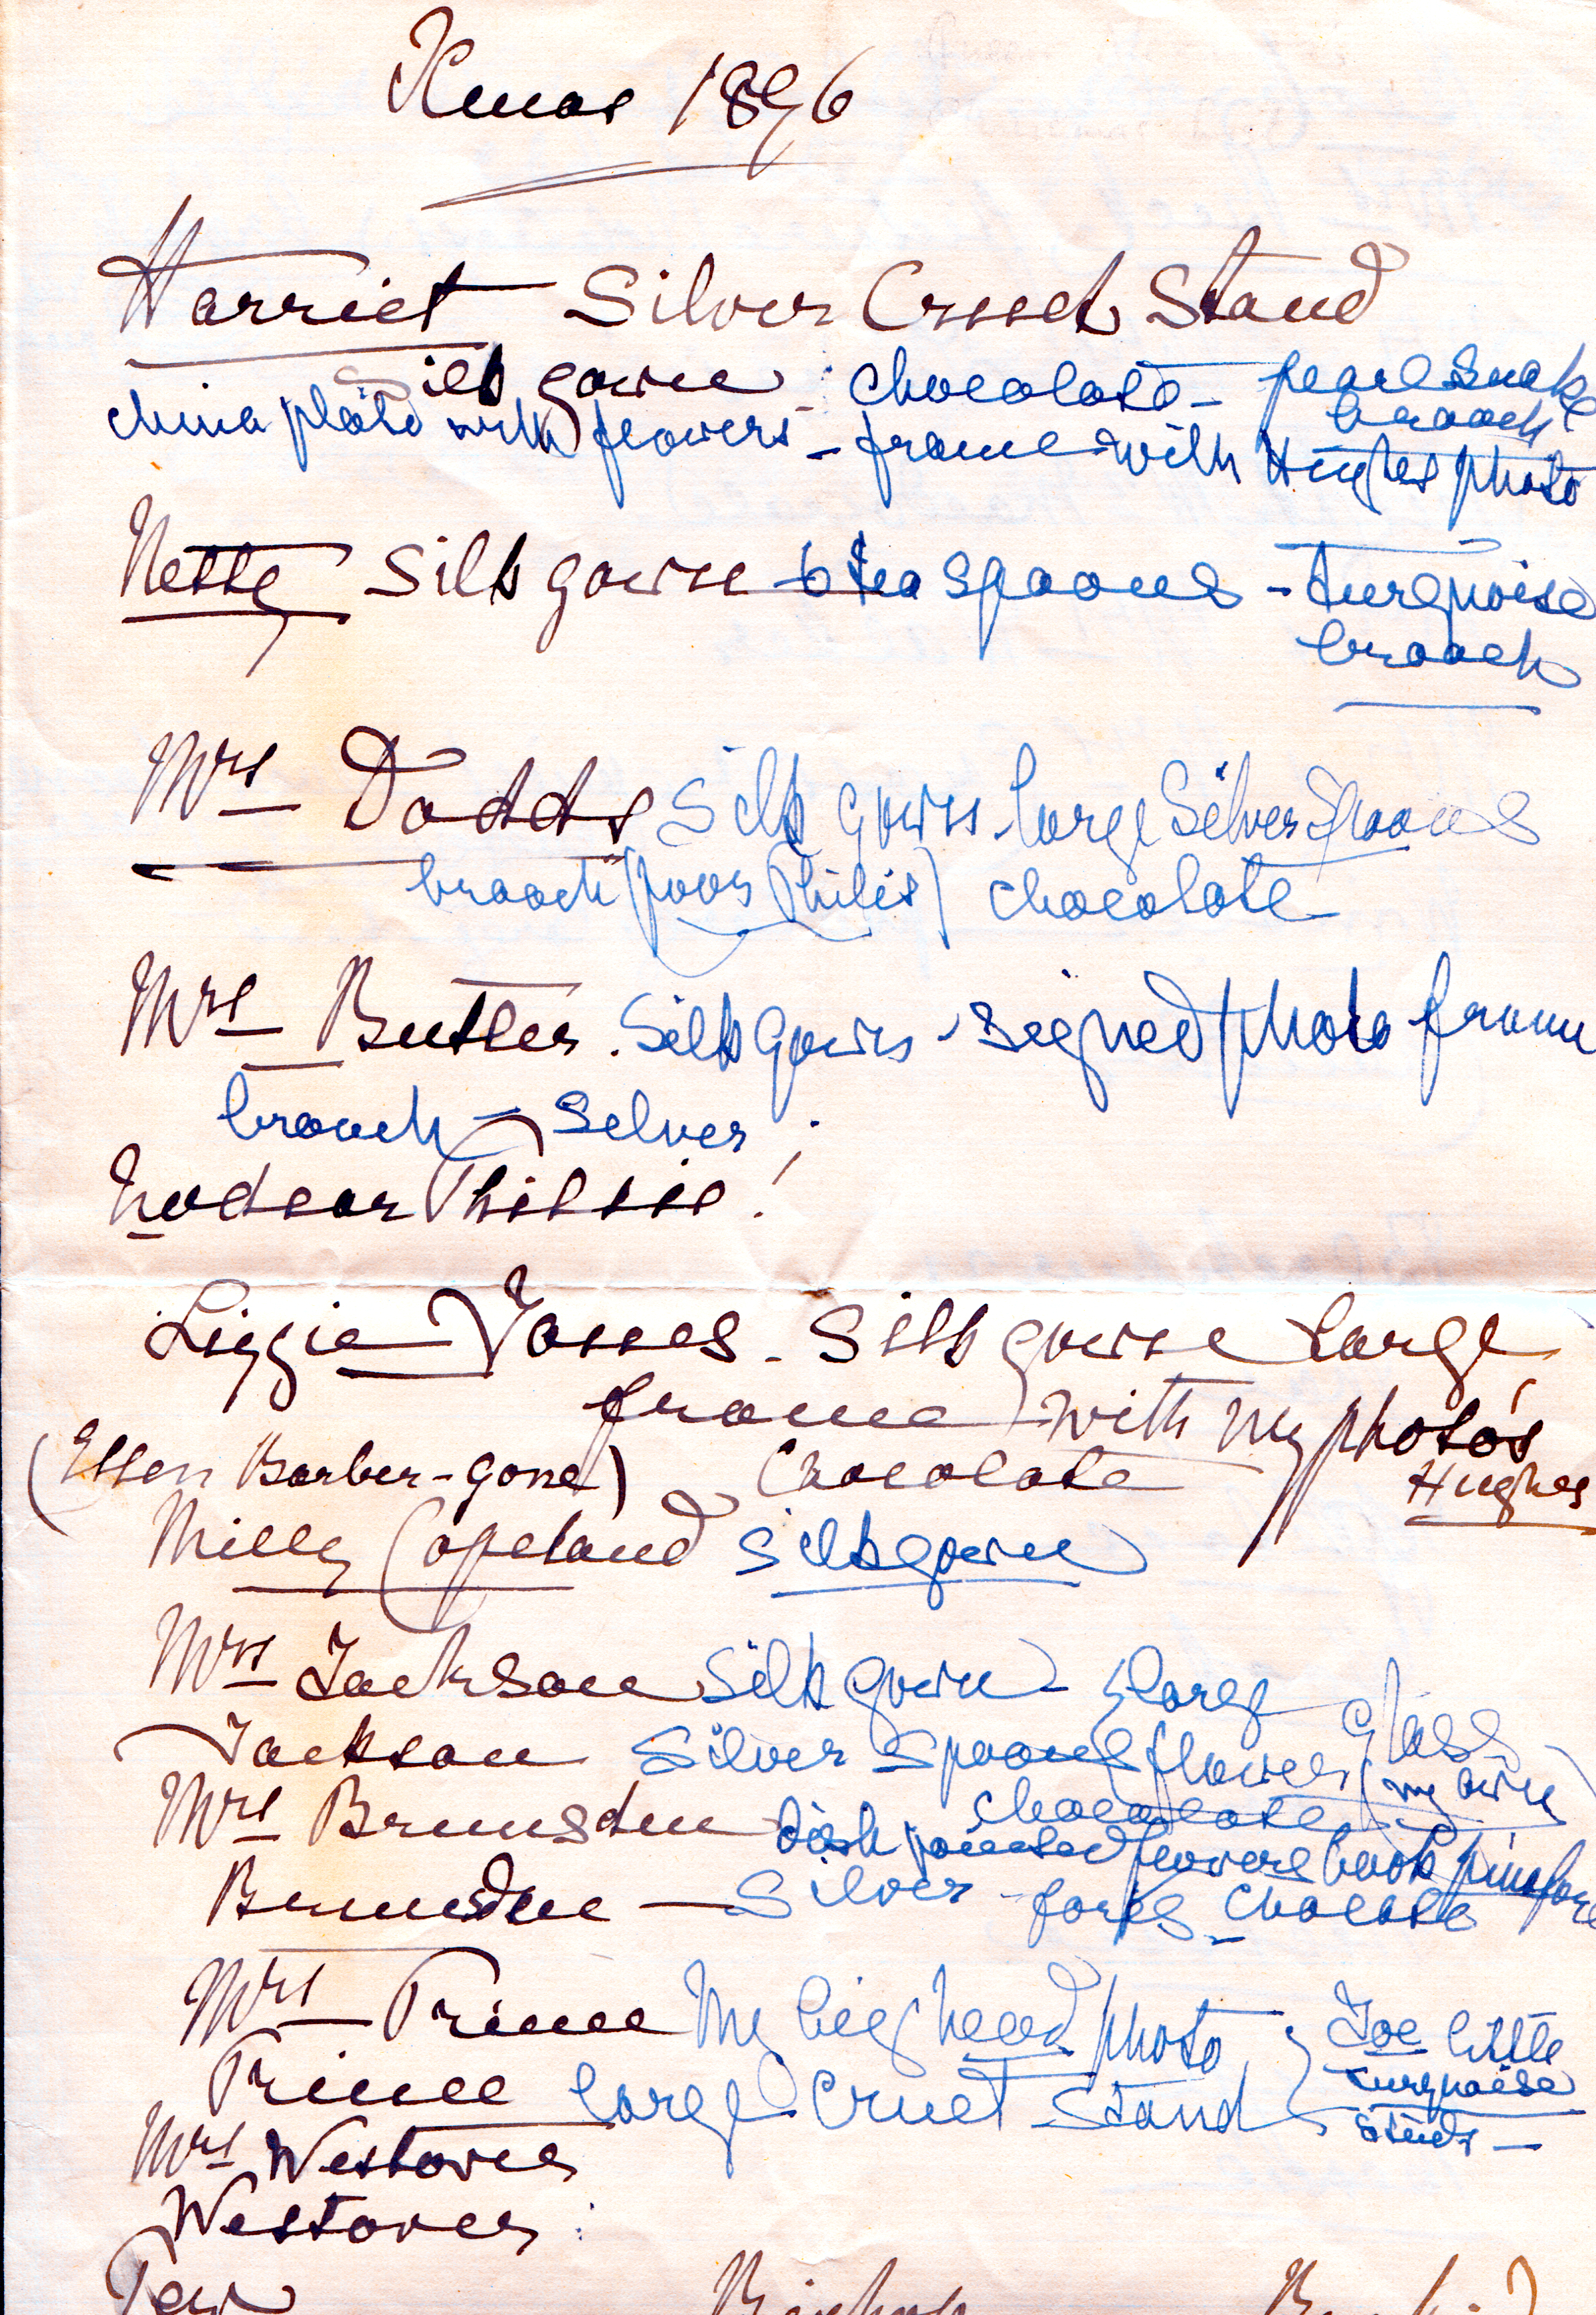 Xmas 1896
Harriet Silver Cruet Stand
Silk gown chocolate - pearl Snake
brooch
china plate with flowers - frame with Hughes photo
Netty Silk gown 6 tea spoons - turquoise
brooch
Mrs Dodds Silk gown large Silver Spoons
brooch (poor Philis) chocolate
Mrs Butler. Silk gown - signed photo frame
brooch - Silver
No dear Phillie!
Lizzie Jones - Silk gown large
frame with my photo's
Hughes
(Ellen Barber - gone) Chocolate
Milly Copeland Silk gown
Mrs Jackson Silk gown - large glass
Jackson Silver Spoons flower (my own)
chocolate
Mrs Brunsden dish painted flowers book pinafore
Brunsden - Silver - forks - Chocolate
Mrs Prince My big head photo } Joe little
Prince large Cruet Stand turquoise
studs -
Mrs Westover
Westover